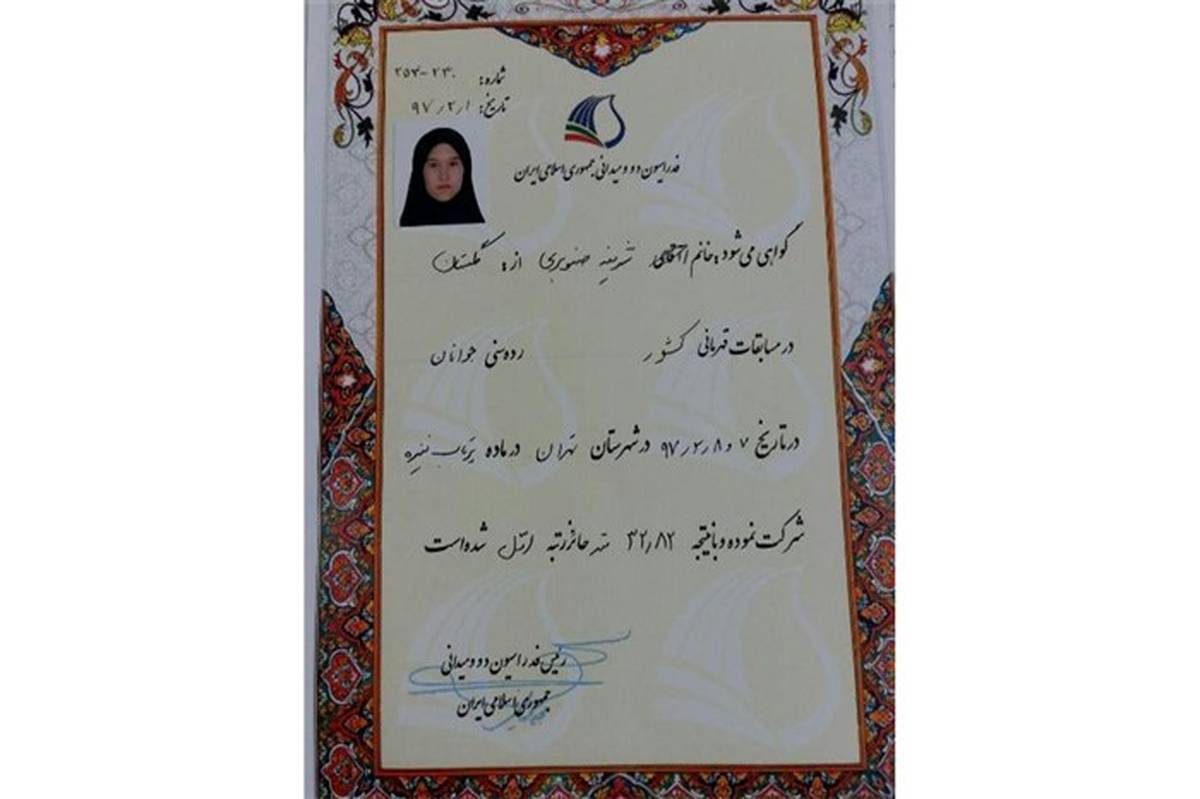 شماره: ۲۵۳-۲۳۰
تاریخ: ۹۷/۲/۱
فدراسیون دو و میدانی جمهوری اسلامی ایران
گواهی می‌شود: خانم / آقای صنوبری از: گلستان
در مسابقات قهرمانی کشور رده سنی جوانان
در تاریخ ۷ و ۹۷/۲/۸ در شهرستان تهران در ماده پرتاب نیزه
شرکت نموده و با نتیجه ۳۲/۸۲ متر حائز رتبه اول شده است
رئیس فدراسیون دو و میدانی
جمهوری اسلامی ایران